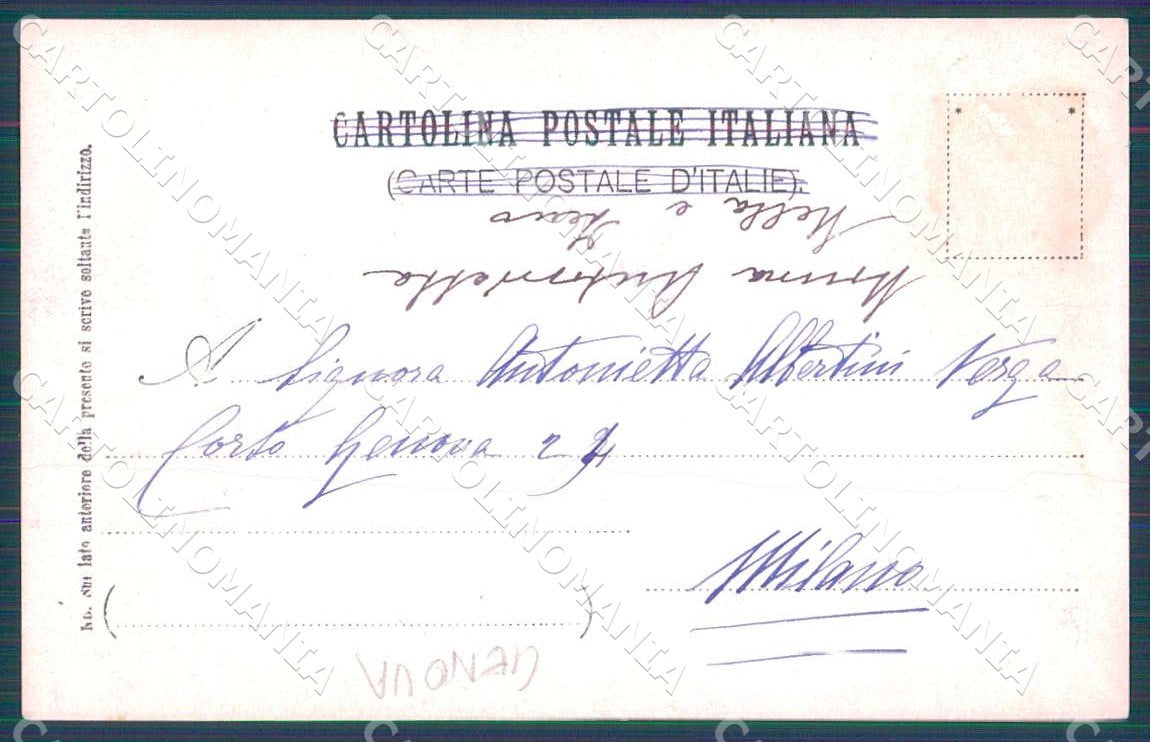 CARTOLINA POSTALE ITALIANA
(CARTE POSTALE D'ITALIE).
Nella e
Nonna Antonietta
A Signora Antonietta Albertini Verga
Corso Genova 24
Milano
NB. Sul lato anteriore della presente si scrive soltanto l'indirizzo.
GENOVA
CARTOLINOMANIA